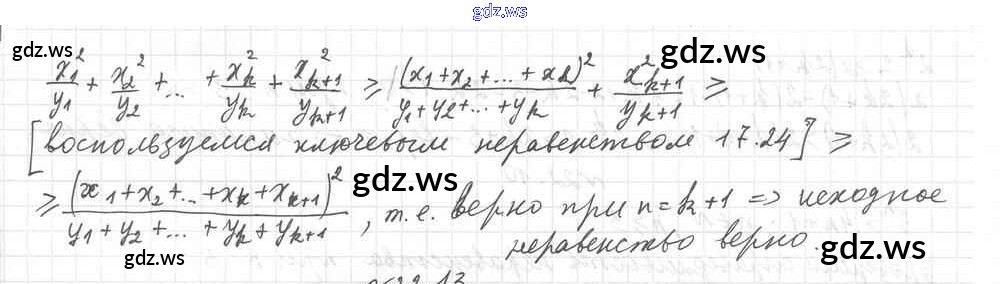 gdz.ws
gdz.ws gdz.ws
x₁²/y₁ + x₂²/y₂ + ... + x_k²/y_k + x²_{k+1}/y_{k+1} ≥ (x₁+x₂+...+x_k)²/(y₁+y₂+...+y_k) + x²_{k+1}/y_{k+1} ≥
[воспользуемся ключевым неравенством 17.24] ≥
gdz.ws
≥ (x₁+x₂+...+x_k+x_{k+1})²/(y₁+y₂+...+y_k+y_{k+1}), т.е. верно при n=k+1 => исходное
неравенство верно.
gdz.ws gdz.ws